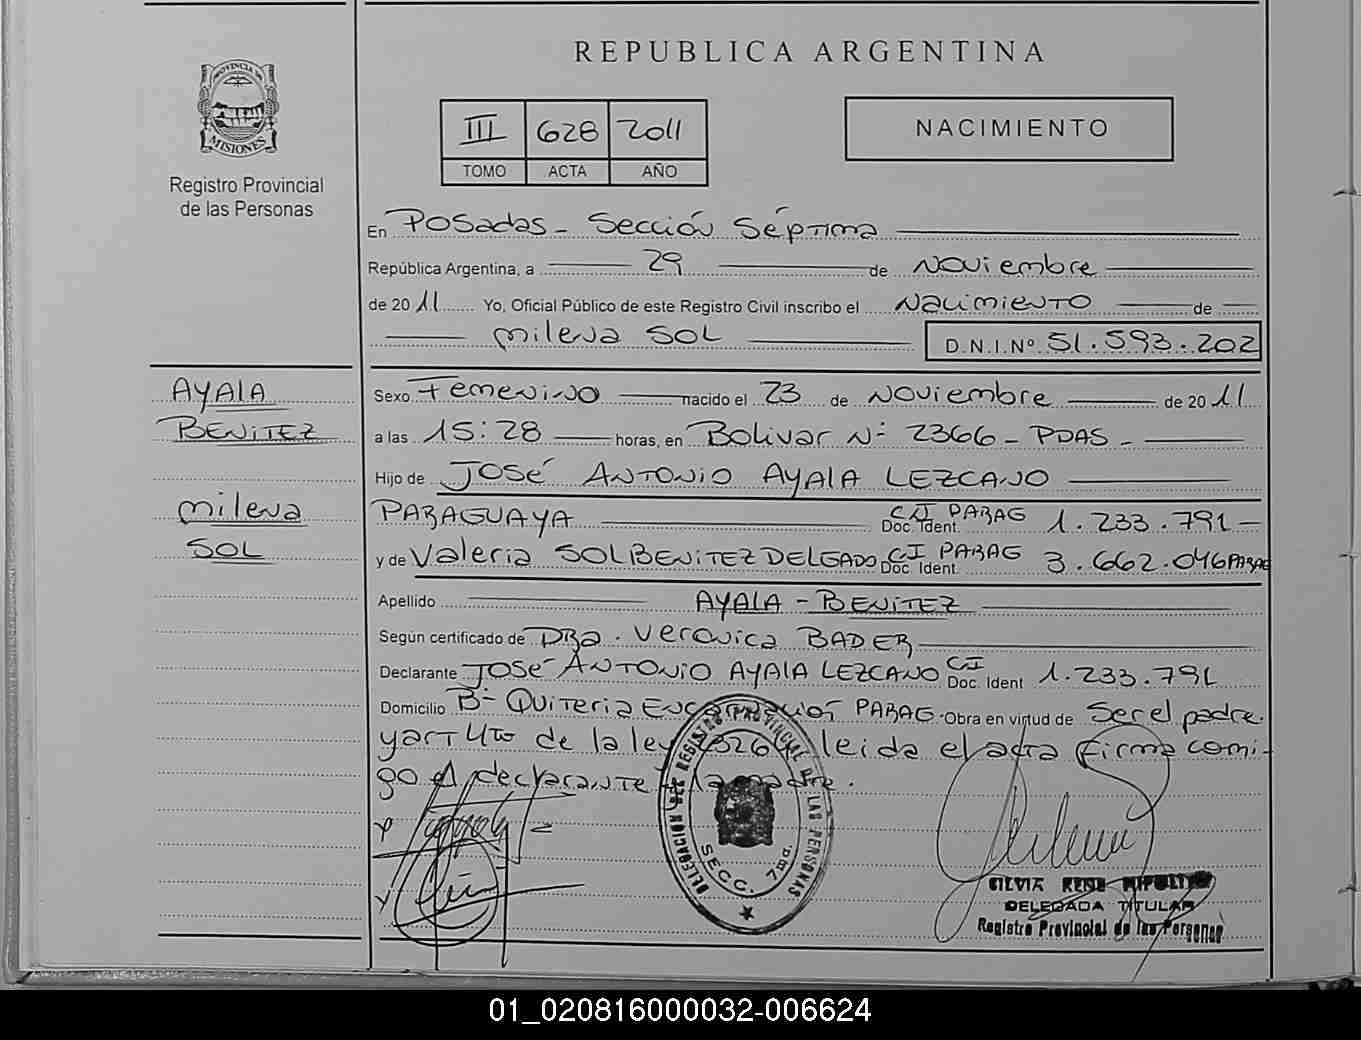 REPUBLICA ARGENTINA
PROVINCIA DE
MISIONES
Registro Provincial
de las Personas
III 628 2011
TOMO ACTA AÑO
NACIMIENTO
En Posadas - Sección Séptima
República Argentina, a 29 de Noviembre
de 2011 Yo, Oficial Público de este Registro Civil inscribo el Nacimiento de
Milena SOL D.N.I.Nº 51.593.202
AYALA
BENITEZ
Milena
SOL
Sexo Femenino nacido el 23 de Noviembre de 2011
a las 15:28 horas, en Bolivar Nº 2366 - PDAS -
Hijo de JOSÉ ANTONIO AYALA LEZCANO
PARAGUAYA Doc. Ident. CI PARAG 1.233.791 -
y de Valeria SOL BENITEZ DELGADO Doc. Ident. CI PARAG 3.662.046 PARAG
Apellido AYALA - BENITEZ
Según certificado de DRa. Veronica BADER
Declarante JOSÉ ANTONIO AYALA LEZCANO CI Doc. Ident 1.233.791
Domicilio Bº Quiteria Encarnación PARAG. Obra en virtud de Ser el padre
y art 4to de la ley leida el acta firma comi-
go el declarante y la madre.
DELEGACION DEL REGISTRO PROVINCIAL DE LAS PERSONAS
SECC. 7ma.
SILVIA RENE
DELEGADA TITULAR
Registro Provincial de las Personas
01_020816000032-006624